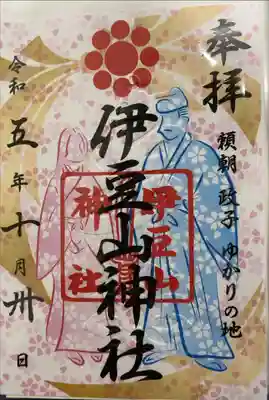 奉拝
頼朝 政子 ゆかりの地
伊豆山神社
伊豆山
神社
令和五年十月卅日